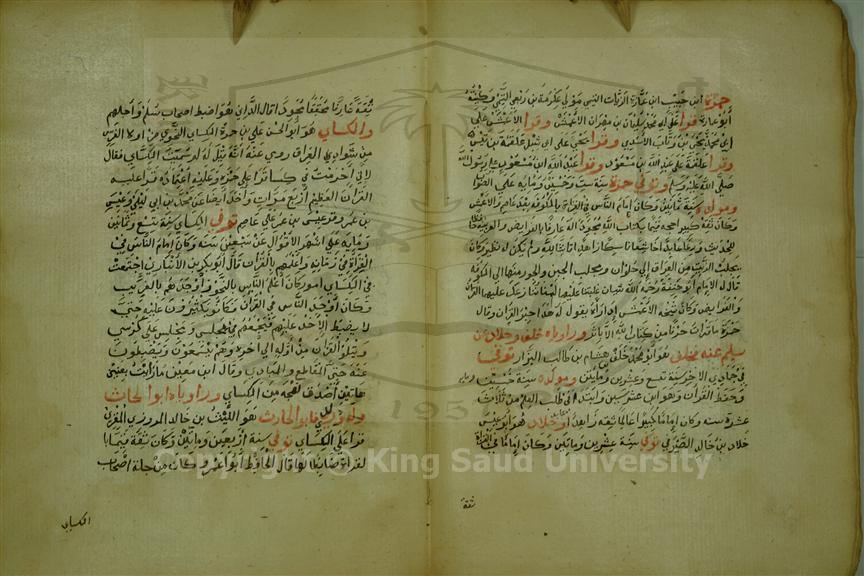 حمزة ابن حبيب ابن عمارة الزيات التيمي مولى عكرمة بن ربعي التيمي وكنيته
أبو عمارة قرأ على ابي محمد سليمان بن مهران الاعمش وقرا الاعمش على
ابي محمد يحيى بن وثاب الاسدي وقرا يحيى على ابي شبل علقمة بن قيس
وقرا علقمة على عبد الله بن مسعود وقرا عبد الله ابن مسعود على رسول الله
صلى الله عليه وسلم وتوفي حمزة سنة ست وخمسين ومايه
ومولده سنة ثمانين وكان إمام الناس في القراة بالكوفة بعد عاصم والاعمش
وكان ثقة كبيرا حجه قيما بكتاب الله مجودا له عارفا بالفرايض والعربية حافظا
للحديث ورعا عابدا خاشعا ناسكا زاهدا قانتا لله ولم يكن له نظير وكان
يجلب الزيت من العراق الى حلوان ويجلب الجبن والجوز منها الى الكوفة
قال له الامام أبو حنيفة رحمه الله شيان غلبتنا عليهما لسنا ننازعك عليهما القرآن
والفرايض وكان شيخه الاعمش اذا رآه يقول له هذا حبر القران وقال
حمزة ما قرات حرفا من كتاب الله الا باثر وراوياه خلف وخلاد عن
سليم عنه فخلف هو ابو محمد خلف بن هشام بن طالب البزار توفي
في جمادي الاخر سنة تسع وعشرين ومايتين ومولده سنة خمسين ومايه
وحفظ القران وهو ابن عشر سنين وابتدا في طلب العلم ابن ثلاث
عشرة سنه وكان إماما كبيرا عالما ثقه زاهدا عابدا وخلاد هو أبو عيسى
خلاد بن خالد الصيرفي توفي سنة عشرين ومائتين وكان إماما في القراة
ثقة
ثقة عارفا محققا مجودا قال الداني هو اضبط اصحاب سليم واجلهم
والكساي هو أبو الحسن علي بن حمزة الكساي النحوي من اولاد الفرس
من سواد العراق روي عنه أنه قيل له لم سميت الكساي فقال
لاني احرمت في كسا قرا على حمزة وعليه اعتماده قرا عليه
القران العظيم أربع مرات واخذ أيضا عن محمد بن ابي ليلى وعيسى
بن عمر وقرا عيسى بن عمر على عاصم توفي الكساي سنة تسع وثمانين
ومايه على اشهر الاقوال عن سبعين سنه وكان إمام الناس في
القراة في زمانه واعلمهم بالقران قال أبو بكر بن الانباري اجتمعت
في الكساي امور كان أعلم الناس بالنحو وأوحدهم بالغريب
وكان أوحد الناس في القران فكانوا يكثرون عليه حتى
لا يضبط الاخذ عليهم فيجمعهم في مجلس ويجلس على كرسي
ويتلو القران من أوله الى آخره وهم يسمعون ويضبطون
عنه حتى المقاطع والمبادي وقال ابن معين ما رايت بعيني
هاتين أصدق لهجه من الكساي وراوياه ابو الحارث
والدوري فابو الحارث هو الليث بن خالد المروزي المقري
قرا على الكساي توفي سنة اربعين ومائتين وكان ثقة قيما
لقراة ضابطا لها قال الحافظ أبو عمرو كان من جلة اصحاب
الكساي
Copyright © King Saud University
195